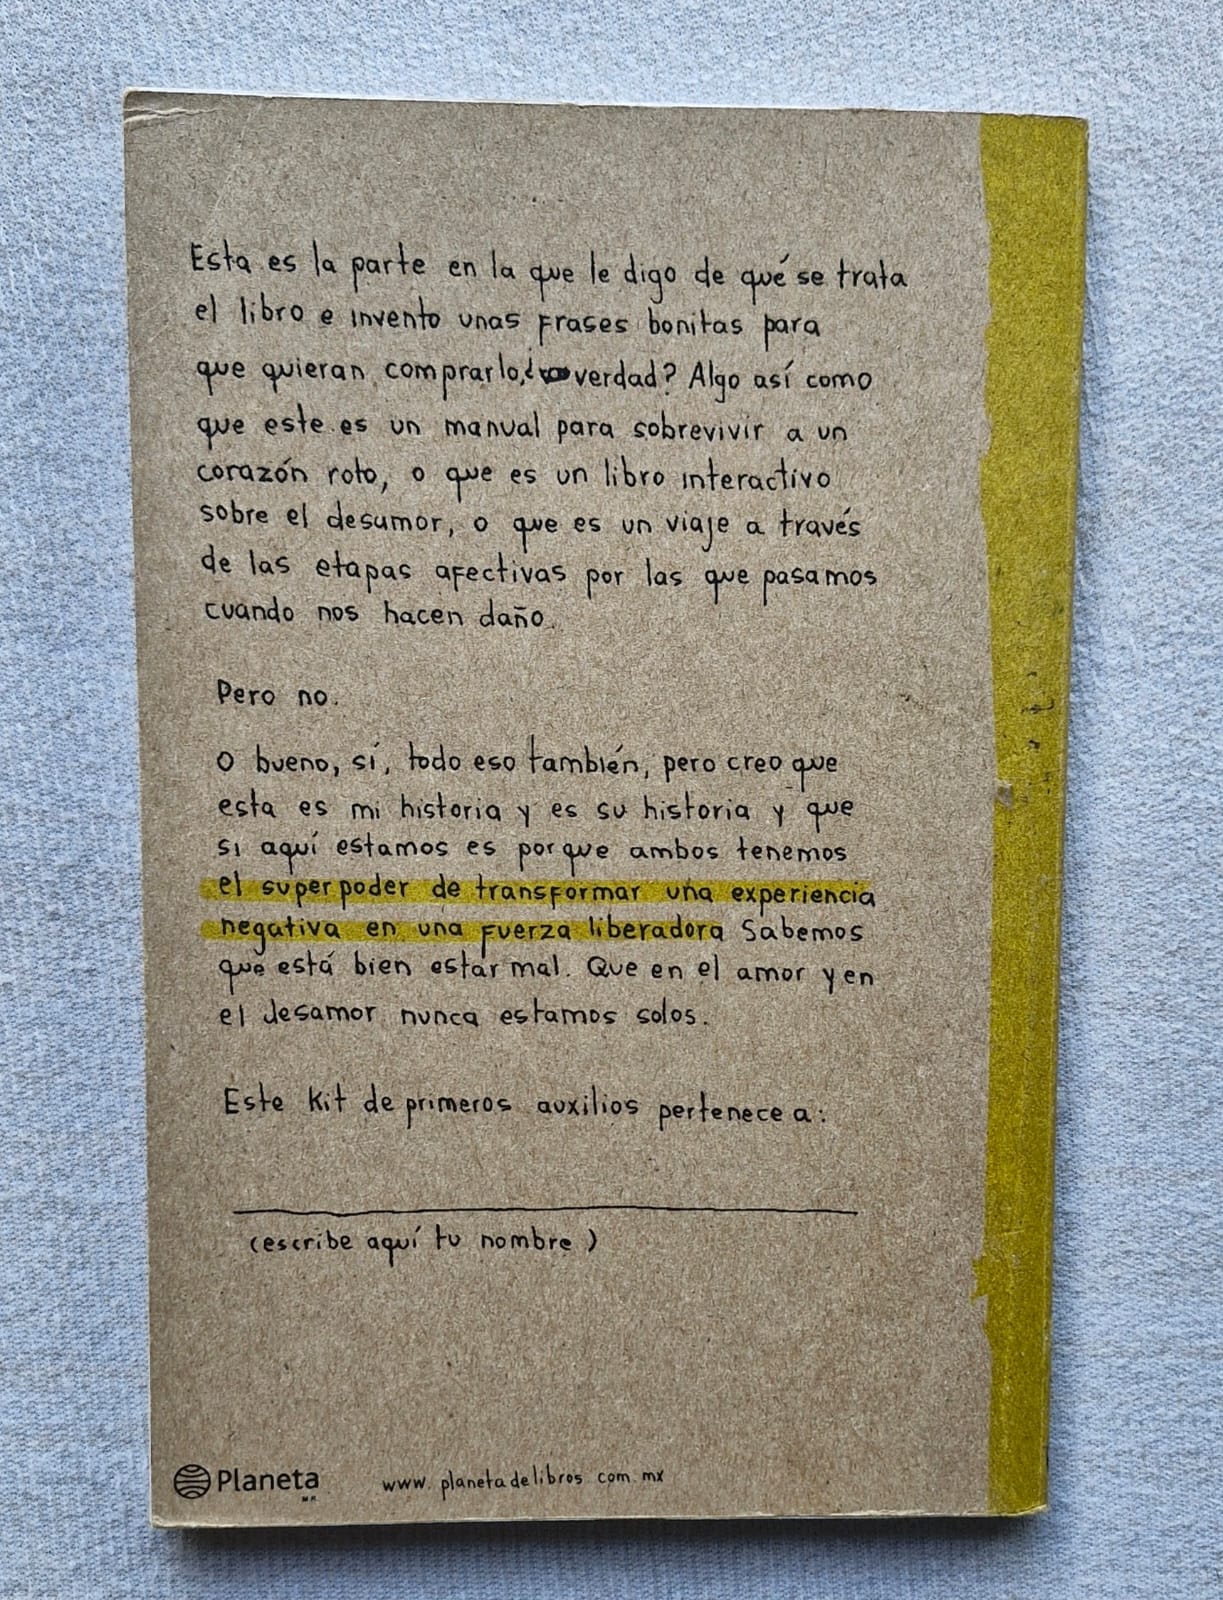 Esta es la parte en la que le digo de qué se trata
el libro e invento unas frases bonitas para
que quieran comprarlo, ¿ verdad? Algo así como
que este es un manual para sobrevivir a un
corazón roto, o que es un libro interactivo
sobre el desamor, o que es un viaje a través
de las etapas afectivas por las que pasamos
cuando nos hacen daño.
Pero no.
O bueno, sí, todo eso también, pero creo que
esta es mi historia y es su historia y que
si aquí estamos es porque ambos tenemos
el superpoder de transformar una experiencia
negativa en una fuerza liberadora Sabemos
que está bien estar mal. Que en el amor y en
el desamor nunca estamos solos.
Este Kit de primeros auxilios pertenece a:
(escribe aquí tu nombre)
Planeta
www.planetadelibros.com.mx